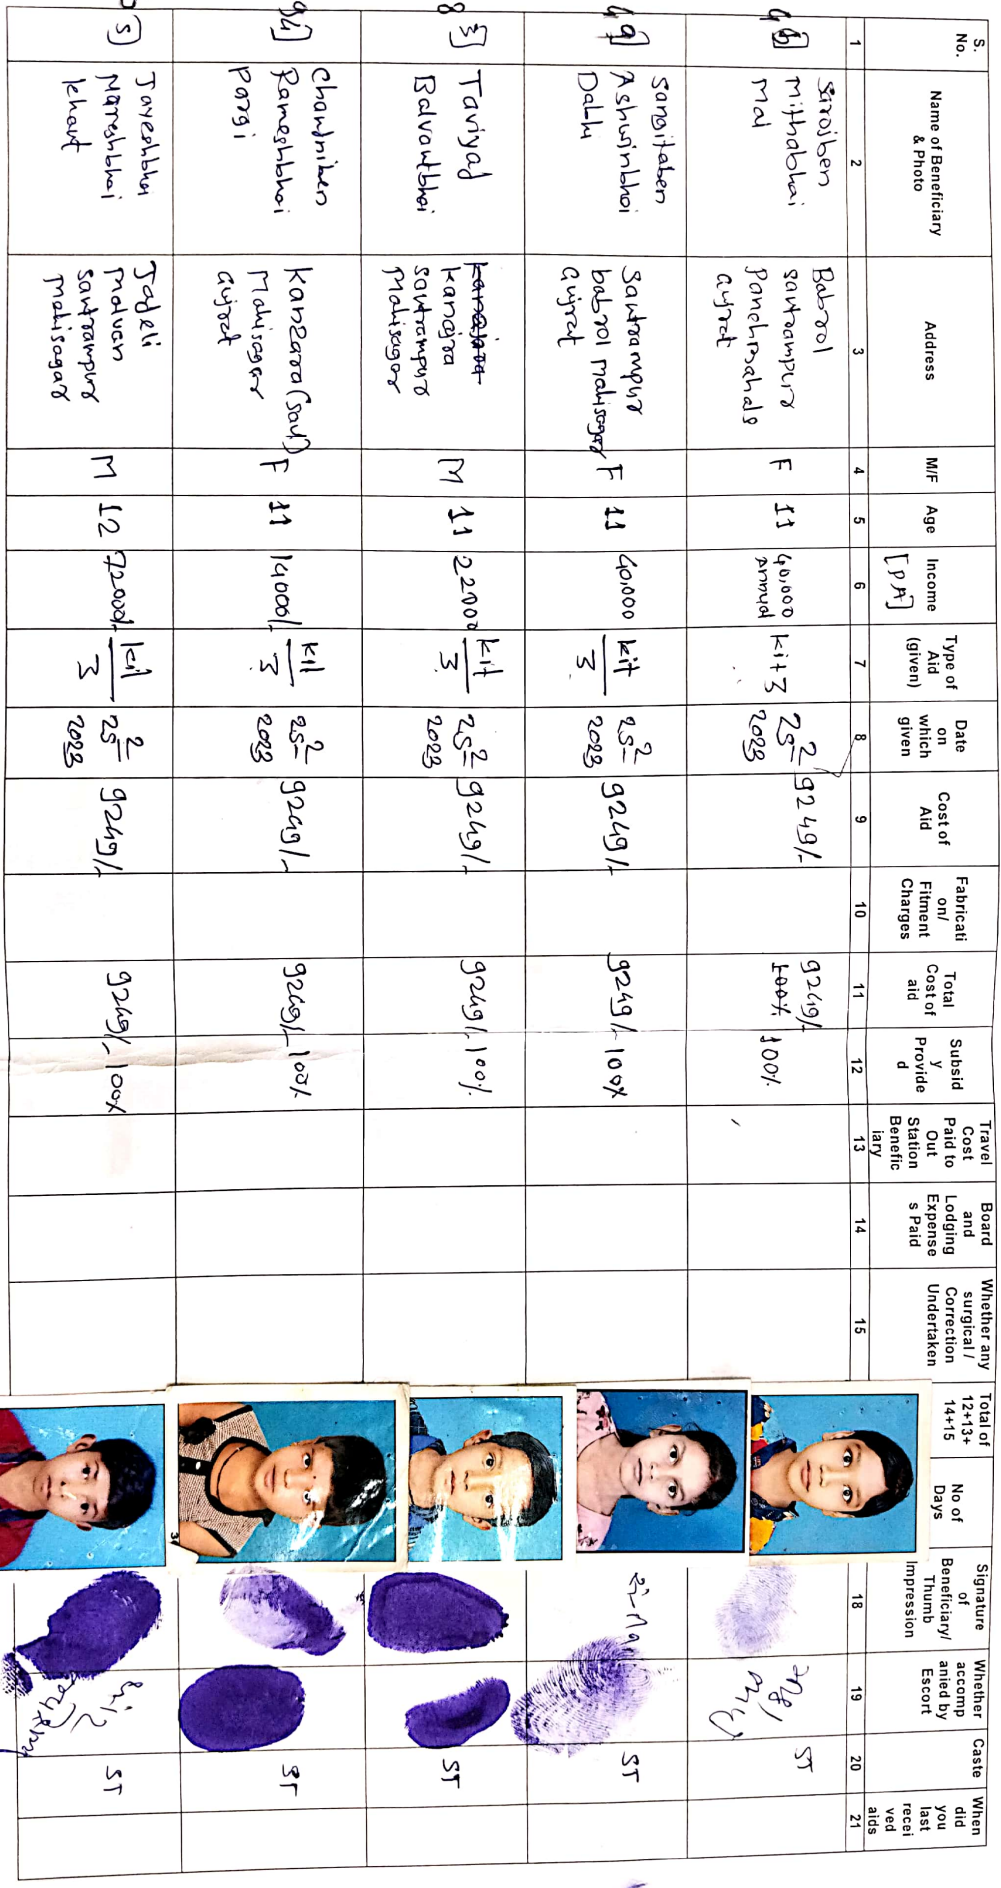 S. No.
Name of Beneficiary & Photo
Address
M/F
Age
Income [PA]
Type of Aid (given)
Date on which given
Cost of Aid
Fabricati on/ Fitment Charges
Total Cost of aid
Subsid y Provide d
Travel Cost Paid to Out Station Benefic iary
Board and Lodging Expense s Paid
Whether any surgical / Correction Undertaken
Total of 12+13+ 14+15
No of Days
Signature of Beneficiary/ Thumb Impression
Whether accomp anied by Escort
Caste
When did you last recei ved aids
1 2 3 4 5 6 7 8 9 10 11 12 13 14 15 18 19 20 21
Sarojben
Mithabhai
Mal
Babrol
santrampur
Panchmahals
Gujrat
F
11
40,000
Annual
kit 3
25 2
2023
9249/-
9249/-
100%
100%
ST
49
Sangitaben
Ashwinbhai
Dabhi
Santrampur
babrol mahisagar
Gujrat
F
11
40,000
kit
3
25 2
2023
9249/-
9249/-
100%
ST
Taviyad
Balvantbhai
kanajra
santrampur
Mahisagar
M
11
22000
kit
3
25 2
2023
9249/-
9249/-
100%
ST
Chandniben
Rameshbhai
Pargi
Kanzara (Sant)
Mahisagar
Gujrat
F
11
14000/-
kit
3
25 2
2023
9249/-
9249/-
100%
ST
Jayeshbhai
Nareshbhai
khant
Jadeli
Malvan
santrampur
Mahisagar
M
12
72000/-
kit
3
25 2
2023
9249/-
9249/-
100%
ST